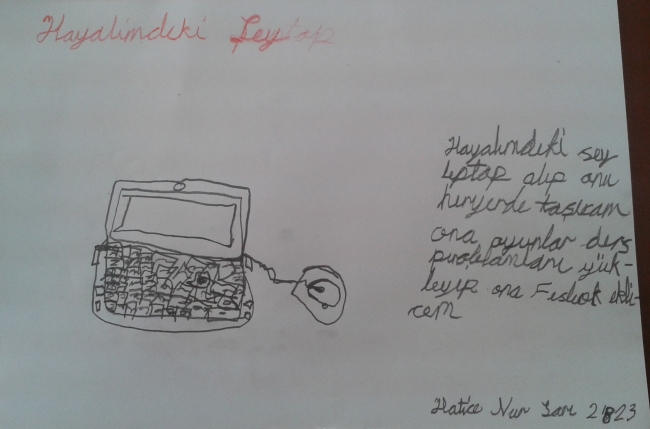 Hayalimdeki Leytap
Hayalımdeki şey
leptap alıp onu
heryerde taşıcam
ona oyunlar ders
puroğlamlanı yük-
leyip ona Fesbok ekli-
cem
Hatice Nur 23